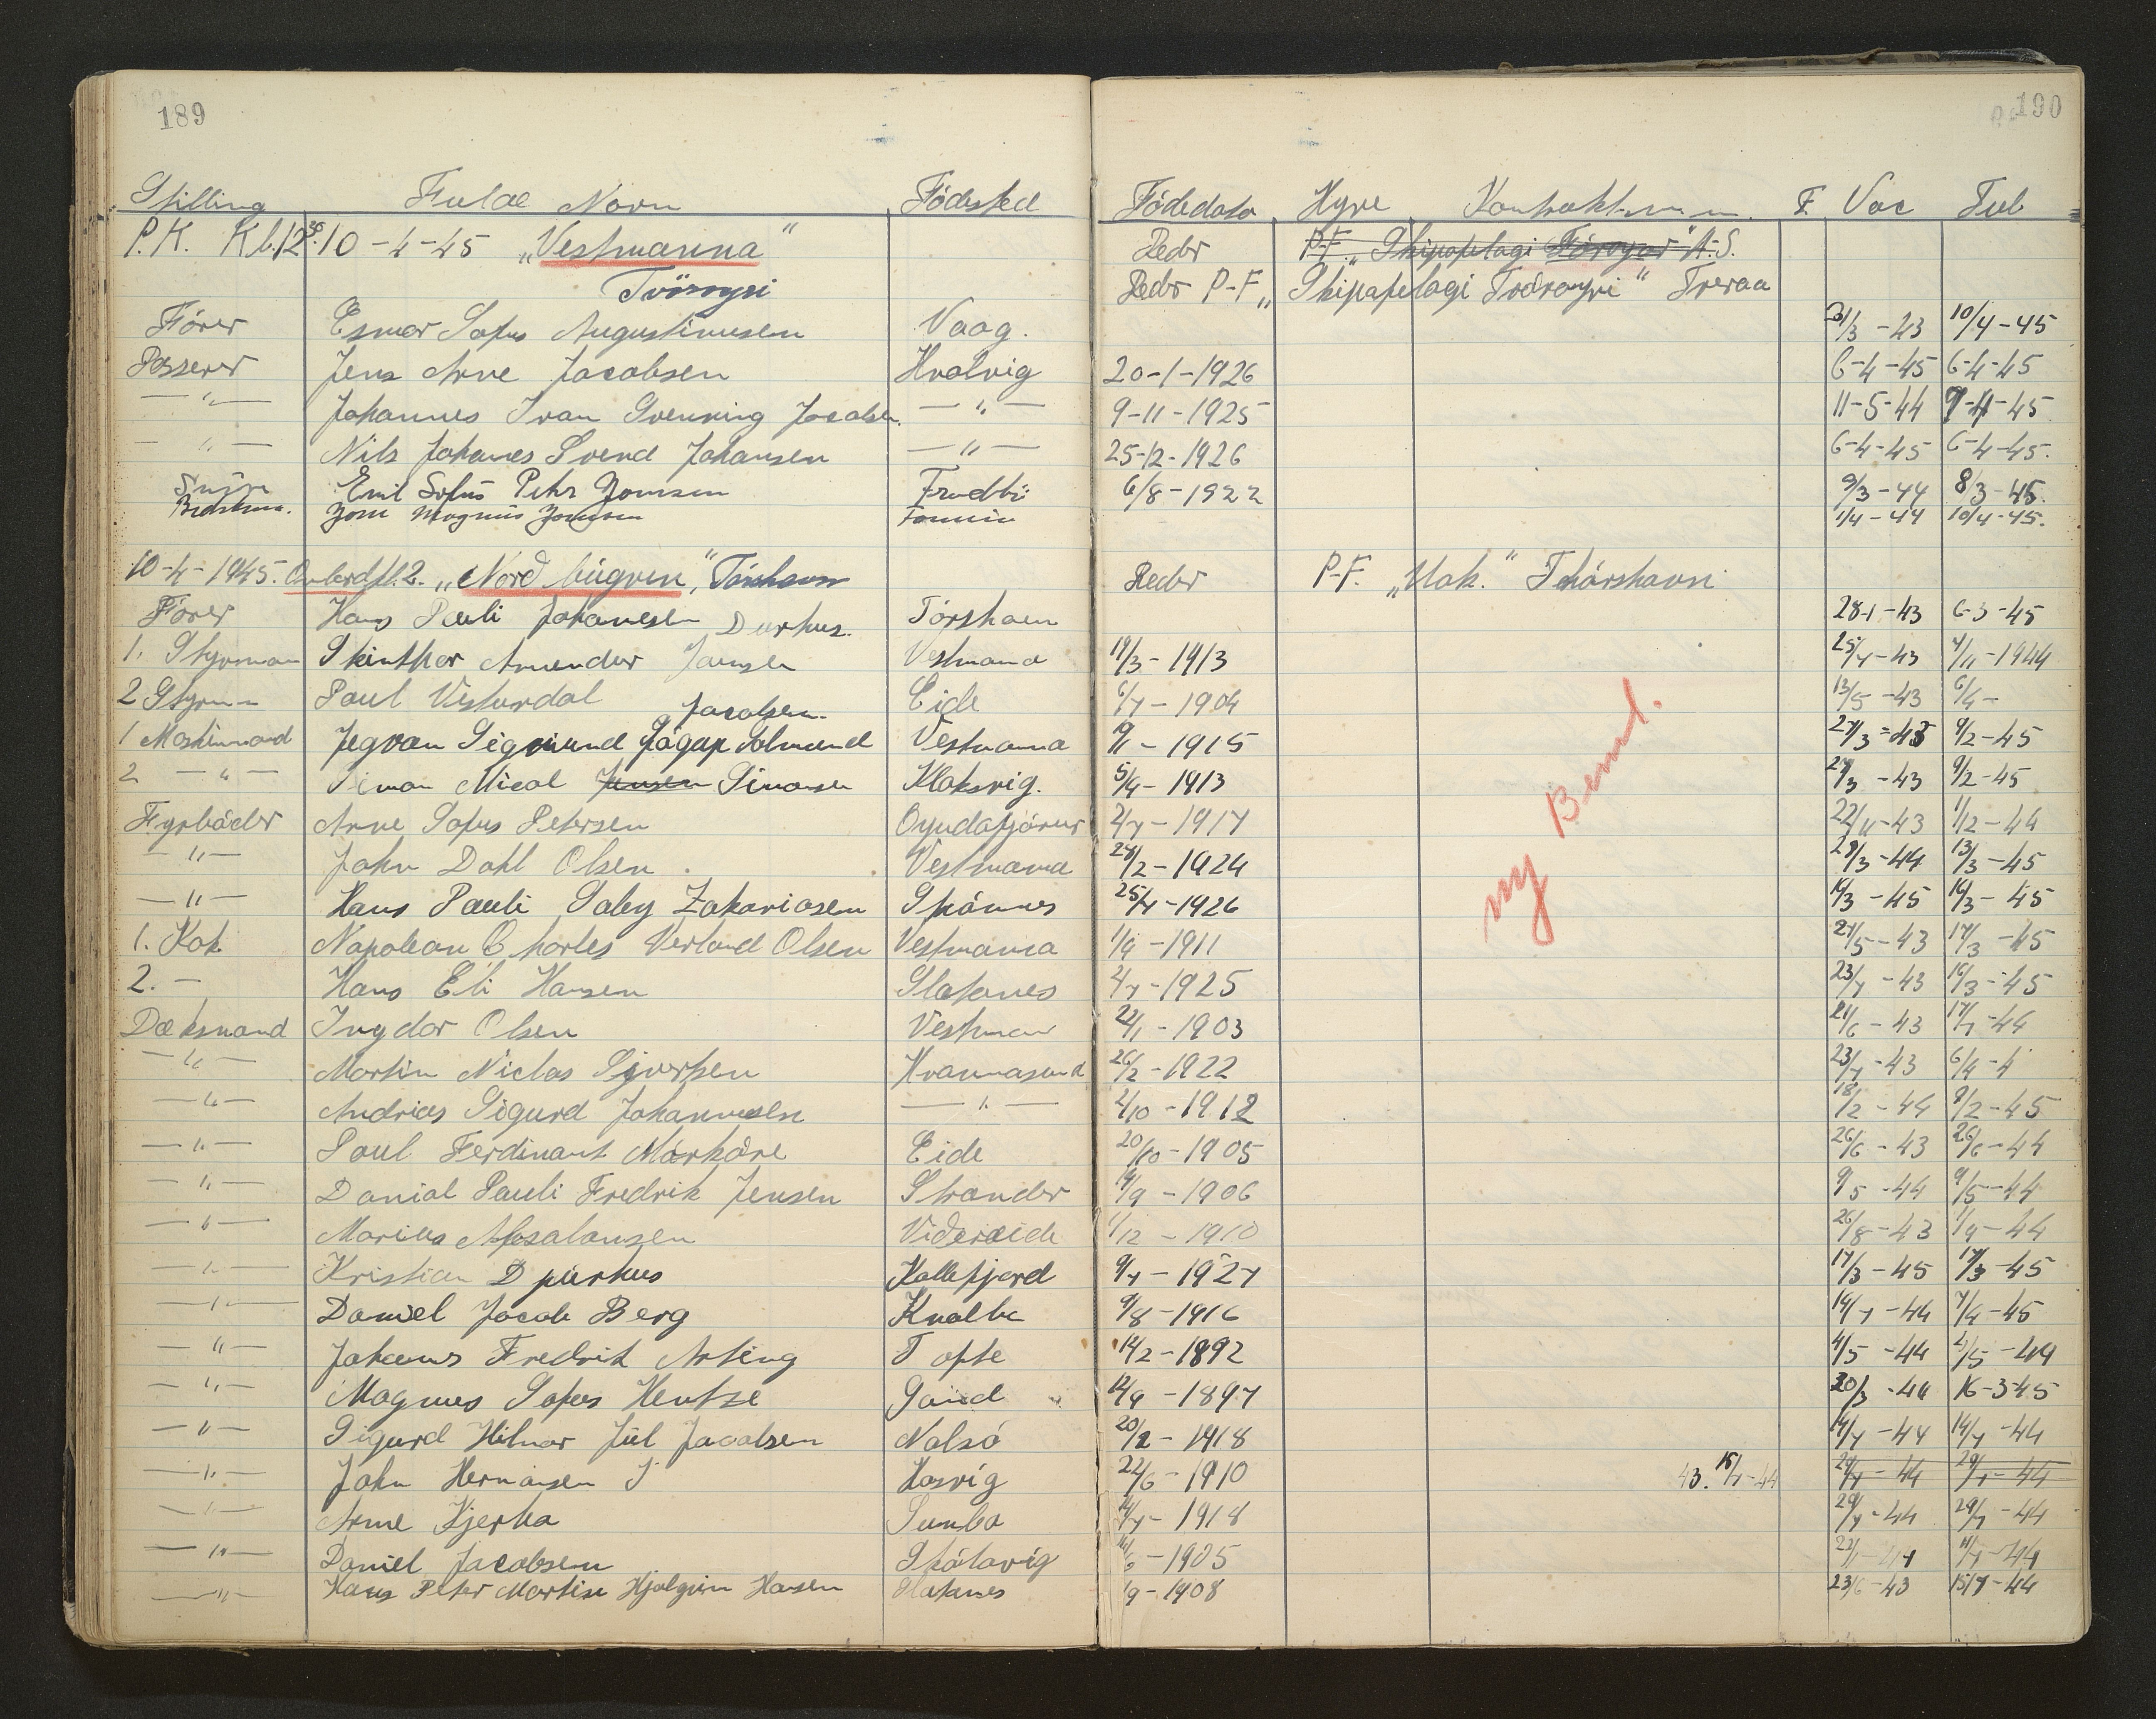 189 190
Stilling Fulde Navn Födested Födedato Hyre F. Vac Tub
P.K. Kl. 12 30. 10-4-45 „Vestmanna“ Reder P-F. „Skipafelagi Föroyar“ A-S.
Tvöroyri Reder P-F „Skipafelagi Tvöroyri“ Tveraa
Förer Esmar Sofus Augustinussen Vaag. 31/3-43 10/4-45
Passerer Jens Arne Jacobsen Hvalvig 20-1-1926 6-4-45 6-4-45
—"— Johannes Ivan Svenning Jacobsen. —"— 9-11-1925 11-5-44 9-4-45
—"— Nils Johannes Svend Johansen —"— 25-12-1926 6-4-45 6-4-45.
Emil Sofus Peter Joensen Frodbö 6/8-1922 9/3-44 8/3-45.
Joen Magnus Joensen 1/4-44 10/4-45.
10-4-1945. „Nordbúgvin“, Tórshavn Reder P-F. „Vak.“ Thórshavn
Förer Hans Pauli Johannesen Durhus. Tórshavn 28-1-43 6-3-45
1. Styrman Skinther Amender Jensen Vestmana 19/3-1913 25/7-43 4/11-1944
2 Styrm Paul Vesturdal Eide 6/7-1904 13/5-43 6/4-
Jacobsen.
1 Maskinmand Jegvan Sigmund Jógap Solmund Vestmanna 9/11-1915 27/3-43 9/2-45
2 —"— Simon Mical Jensen Simonsen Klaksvig. 5/9-1913 27/3-43 9/2-45
Fyrböder Arne Sofus Petersen Oyndafjörur 2/7-1917 22/11-43 1/12-44
—"— John Dahl Olsen. Vestmana 28/2-1924 28/3-44 13/3-45
—"— Hans Pauli Saby Zakariasen Skáness 25/7-1926 16/3-45 16/3-45
1. Kok Napolean Charles Verland Olsen Vestmanna 1/9-1911 27/5-43 17/3-45
2. — Hans Eli Hansen Slatanes 2/7-1925 23/7-43 16/3-45
Dæksmand Ingdor Olsen Vestman 22/1-1903 21/6-43 17/7-44
—"— Martin Niclas Sjvertsen Hvannasund 26/2-1922 23/7-43 6/4-4
—"— Andrias Sigurd Johannesen —"— 2/10-1912 18/2-44 9/2-45
—"— Paul Ferdinant Mörköre Eide 20/10-1905 26/6-43 26/6-44
—"— Danial Pauli Fredrik Jensen Strander 19/9-1906 9/5-44 9/5-44
—"— Marius Absalonsen Videreide 1/12-1910 26/8-43 1/9-44
—"— Kristian Djurhus Kollefjord 9/7-1927 17/3-45 17/3-45
—"— Daniel Jacob Berg Kvalbø 9/8-1916 14/7-44 7/4-45
—"— Johannes Fredrik Arting Tofte 14/2-1892 4/5-44 2/5-44
—"— Magnus Sofus Hentze Sand 12/9-1897 20/3-44 16-3-45
—"— Sigurd Hilmar Júl Jacobsen Nolsö 20/2-1918 14/7-44 14/7-44
—"— John Hermansen Hosvíg 22/6-1910 43. 15/7-44 29/7-44 29/7-44
—"— Arne Kjerbo Sumbo 14/7-1918 29/7-44 29/7-44
—"— Daniel Jacobsen Skálavíg 11/6-1905 11/7-44
—"— Hans Peter Martin Hjalgrim Hansen 1/9-1908 23/6-43 15/7-44
ny Beml.